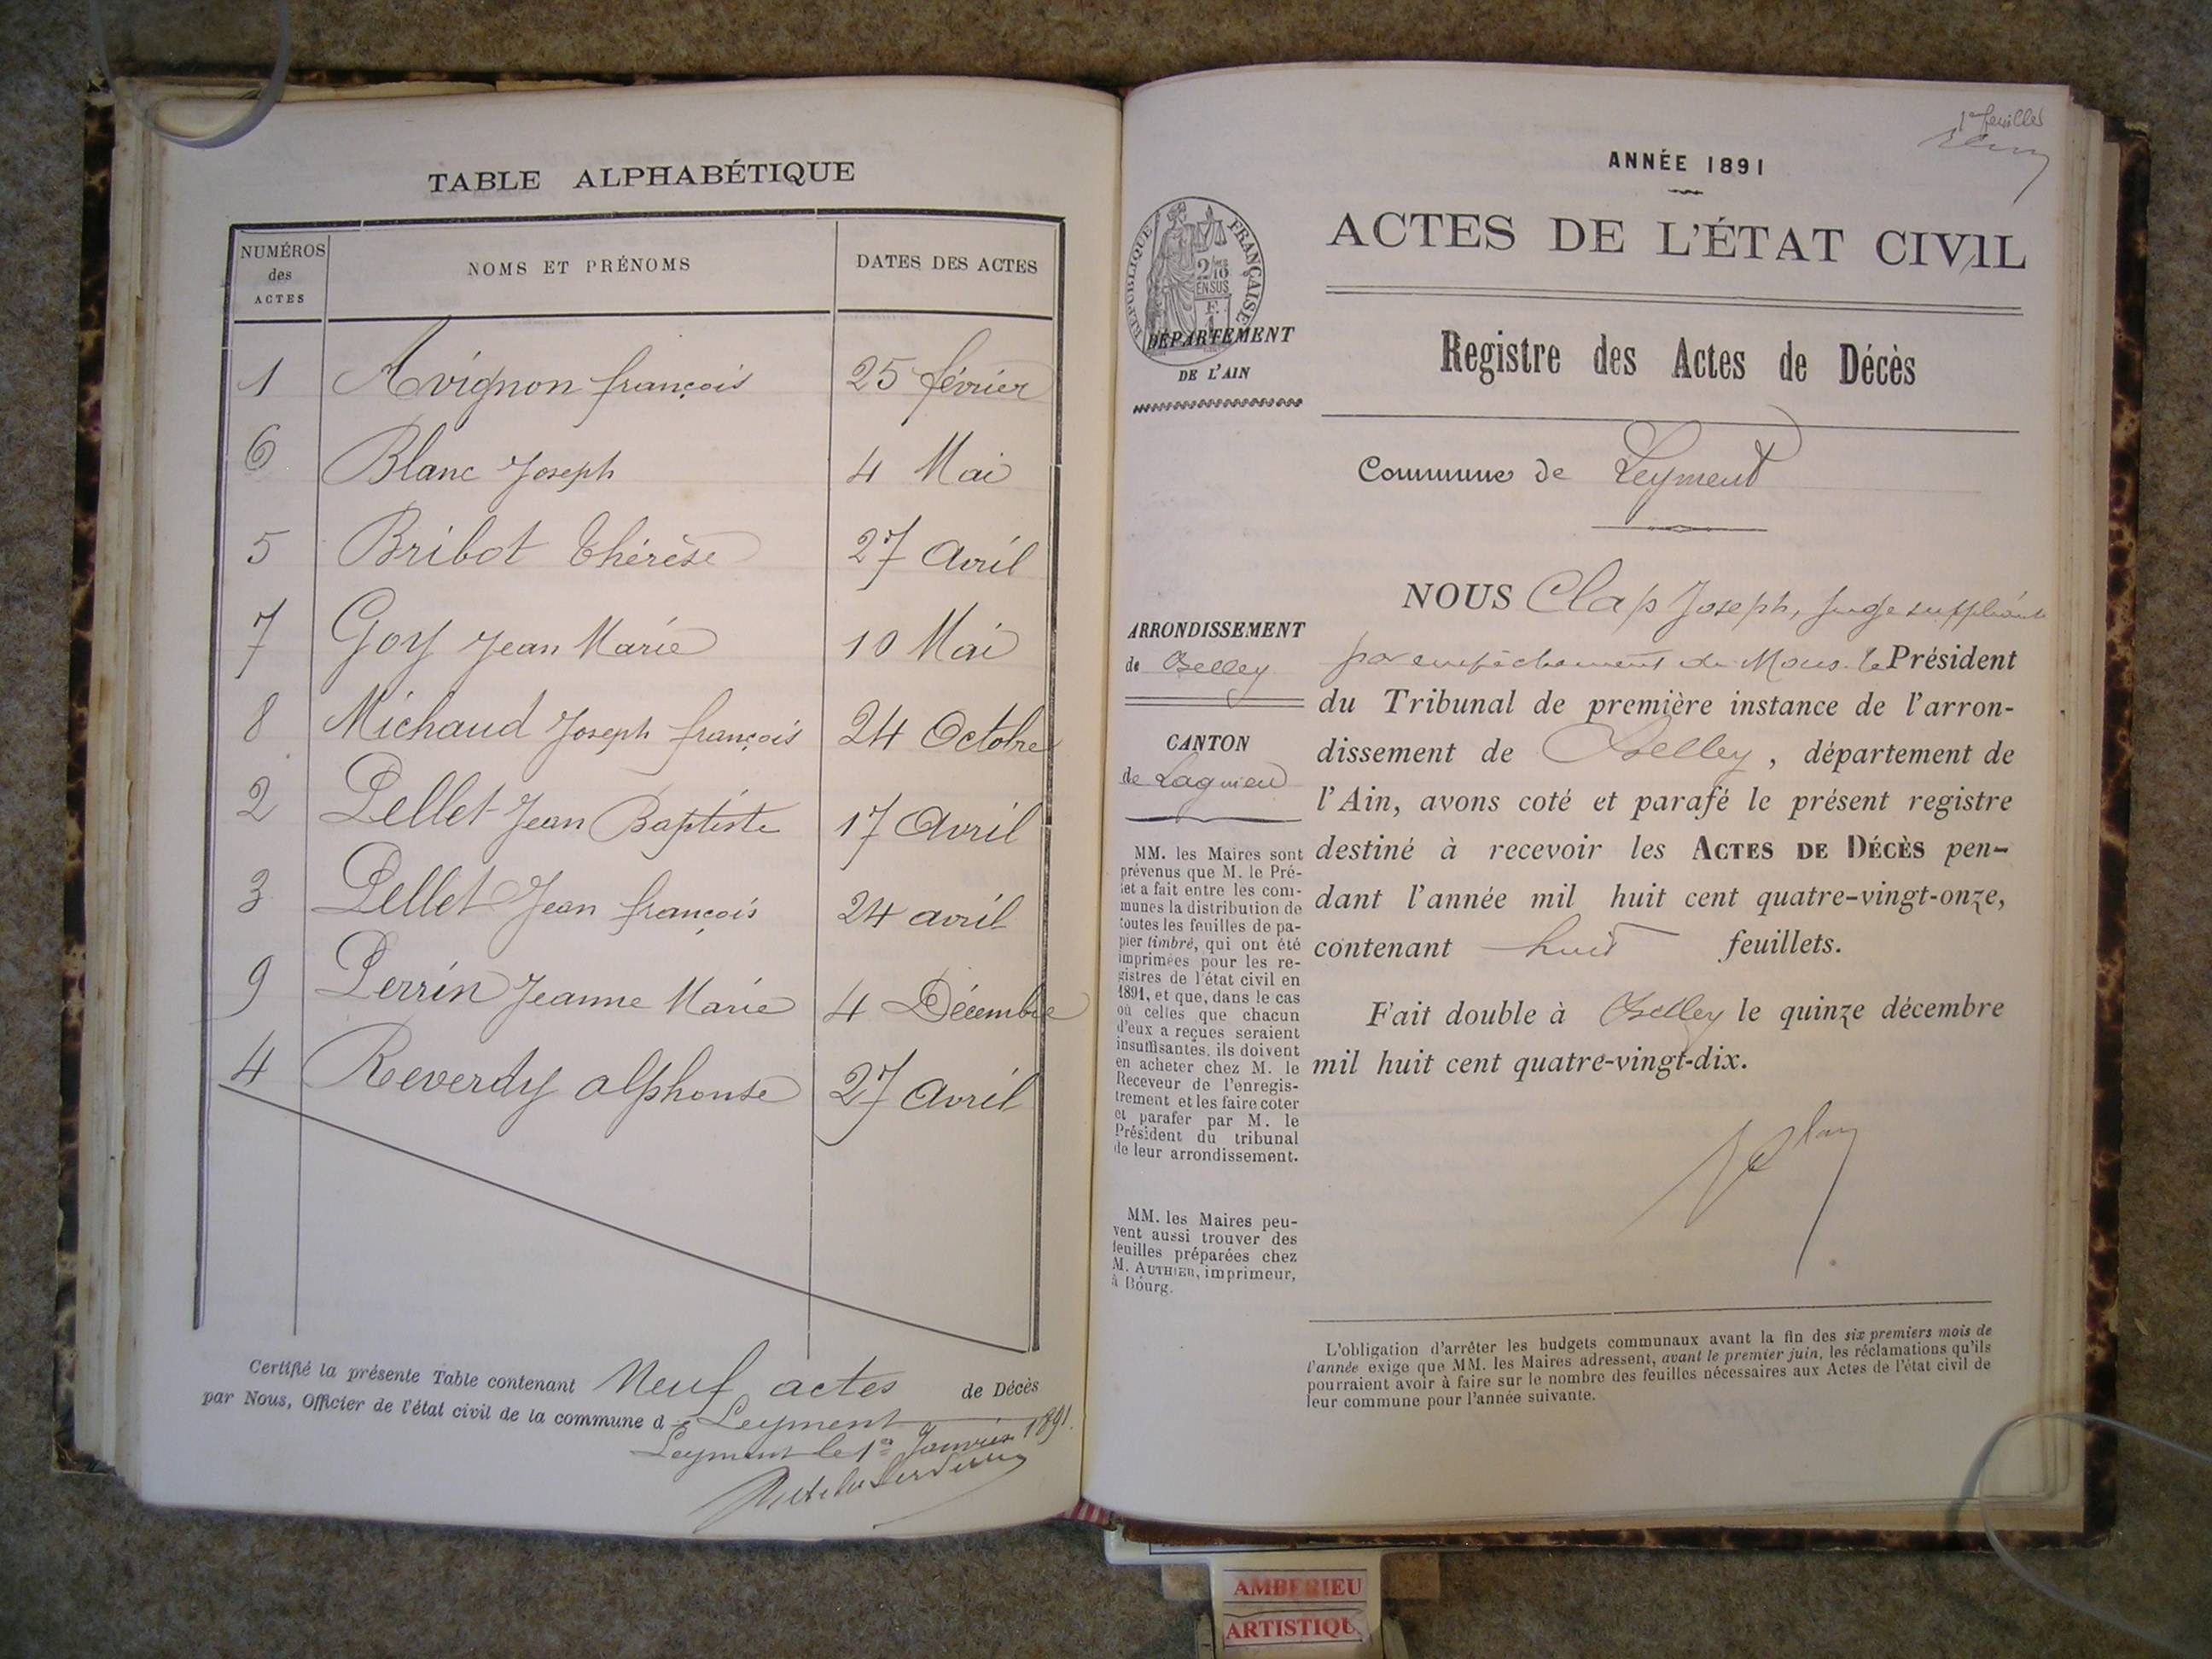 TABLE ALPHABÉTIQUE
NUMÉROS des ACTES NOMS ET PRÉNOMS DATES DES ACTES
1 Avignon françois 25 février
6 Blanc Joseph 4 Mai
5 Bribot Thérèse 27 Avril
7 Goy Jean Marie 10 Mai
8 Michaud Joseph françois 24 Octobre
2 Pellet Jean Baptiste 17 Avril
3 Pellet Jean françois 24 avril
9 Perrin Jeanne Marie 4 Décembre
4 Reverdy alphonse 27 Avril
Certifié la présente Table contenant Neuf actes de Décès
par Nous, Officier de l'état civil de la commune de Leyment
Leyment le 1er Janvier 1891
1e feuillet
ANNÉE 1891
ACTES DE L'ÉTAT CIVIL
RÉPUBLIQUE FRANÇAISE
2/10
EN SUS
DÉPARTEMENT
DE L'AIN
Registre des Actes de Décès
Commune de Leyment
ARRONDISSEMENT
de Belley
CANTON
de Lagnieu
MM. les Maires sont
prévenus que M. le Pré-
fet a fait entre les com-
munes la distribution de
toutes les feuilles de pa-
pier timbré, qui ont été
imprimées pour les re-
gistres de l'état civil en
1891, et que, dans le cas
où celles que chacun
d'eux a reçues seraient
insuffisantes, ils doivent
en acheter chez M. le
Receveur de l'enregis-
trement et les faire coter
et parafer par M. le
Président du tribunal
de leur arrondissement.
MM. les Maires peu-
vent aussi trouver des
feuilles préparées chez
M. AUTHIER, imprimeur,
à Bourg.
NOUS Clap Joseph, juge suppléant
par empêchement de Mons. le Président
du Tribunal de première instance de l'arron-
dissement de Belley, département de
l'Ain, avons coté et parafé le présent registre
destiné à recevoir les ACTES DE DÉCÈS pen-
dant l'année mil huit cent quatre-vingt-onze,
contenant huit feuillets.
Fait double à Belley le quinze décembre
mil huit cent quatre-vingt-dix.
L'obligation d'arrêter les budgets communaux avant la fin des six premiers mois de
l'année exige que MM. les Maires adressent, avant le premier juin, les réclamations qu'ils
pourraient avoir à faire sur le nombre des feuilles nécessaires aux Actes de l'état civil de
leur commune pour l'année suivante.
AMBERIEU
ARTISTIQU